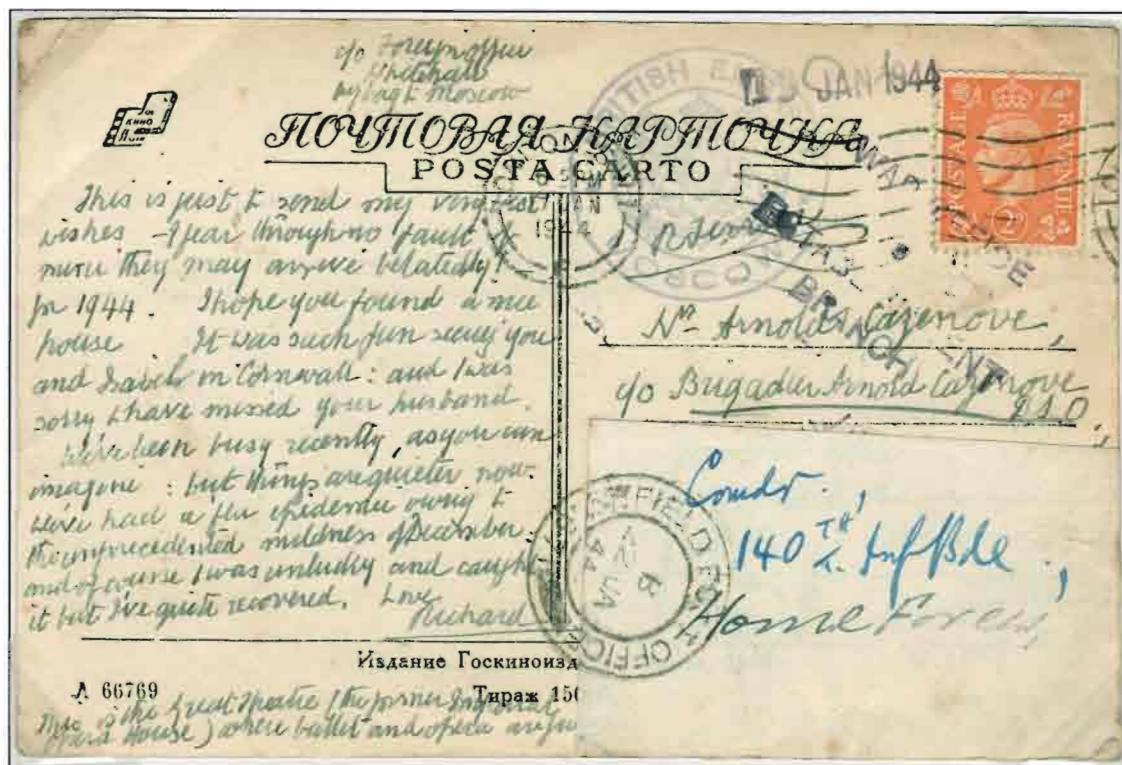 c/o Foreign Office
Whitehall
by bag to Moscow
JAN 1944
КИНО
ПОЧТОВАЯ КАРТОЧКА
POSTA CARTO
POSTAGE REVENUE
2D
LONDON
JAN
1944
BRITISH
WAR OFFICE
ESTABLISHMENT
BRANCH
This is just to send my very best
wishes - I fear through no fault of
mine they may arrive belatedly
for 1944. I hope you found a nice
house. It was such fun seeing you
and Isabel in Cornwall: and I was
sorry to have missed your husband.
We've been busy recently, as you can
imagine: but things are quieter now.
We've had a flu epidemic owing to
the unprecedented mildness of December
and of course I was unlucky and caught
it but I've quite recovered. Love
Richard
Mrs Arnold Cazenove,
c/o Brigadier Arnold Cazenove
DSO,
Comdr.,
140TH Inf Bde,
Home Forces,
FIELD POST OFFICE
13 JA
44
Издание Госкиноизд
Л 66769
Тираж 150
This is the Great Theatre (the former Imperial
Opera House) where ballet and opera are